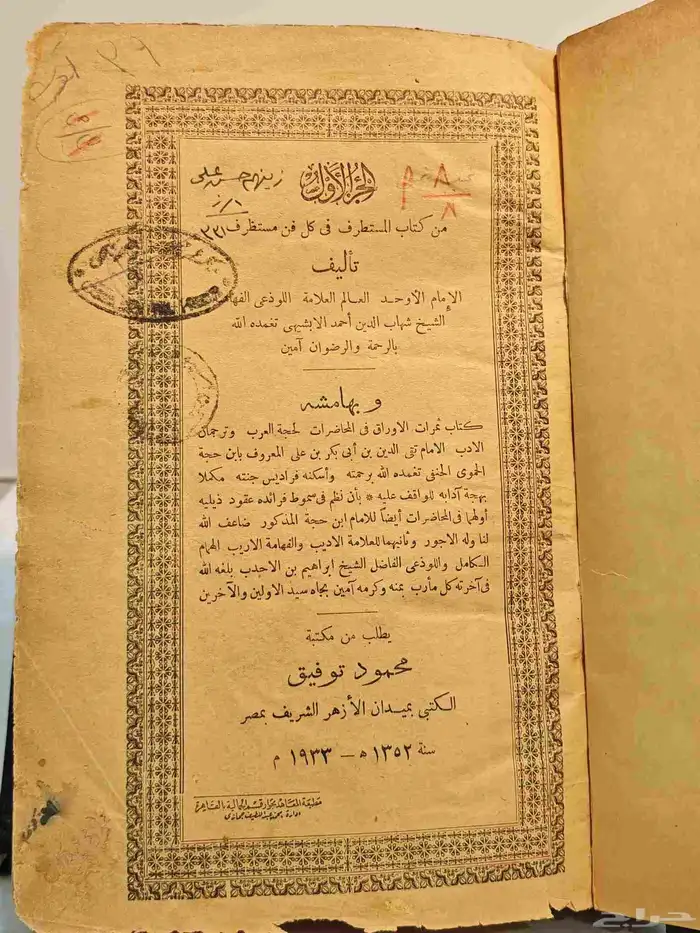 الجزء الأول
من كتاب المستطرف فى كل فن مستظرف
تأليف
الإمام الأوحد العالم العلامة اللوذعى الفهامة
الشيخ شهاب الدين أحمد الابشيهى تغمده الله
بالرحمة والرضوان آمين
وبهامشه
كتاب ثمرات الاوراق فى المحاضرات لحجة العرب وترجمان
الادب الامام تقى الدين بن أبى بكر بن على المعروف بابن حجة
الحموى الحنفى تغمده الله برحمته وأسكنه فراديس جنته مكملا
بهجة آدابه للواقف عليه * بأن نظم فى سموط فرائده عقود ذيليه
أولهما فى المحاضرات أيضاً للامام ابن حجة المذكور ضاعف الله
لنا وله الاجور وثانيهما للعلامة الاديب والفهامة الاريب الهمام
الكامل واللوذعى الفاضل الشيخ ابراهيم بن الاحدب بلغه الله
فى آخرته كل مأرب بمنه وكرمه آمين بجاه سيد الاولين والآخرين
يطلب من مكتبة
محمود توفيق
الكتبى بميدان الأزهر الشريف بمصر
سنة ١٣٥٢ ه — ١٩٣٣ م
مطبعة المعاهد بجوار قسم الجمالية بالقاهرة
ادارة محمد عبد اللطيف حجازى
حراج